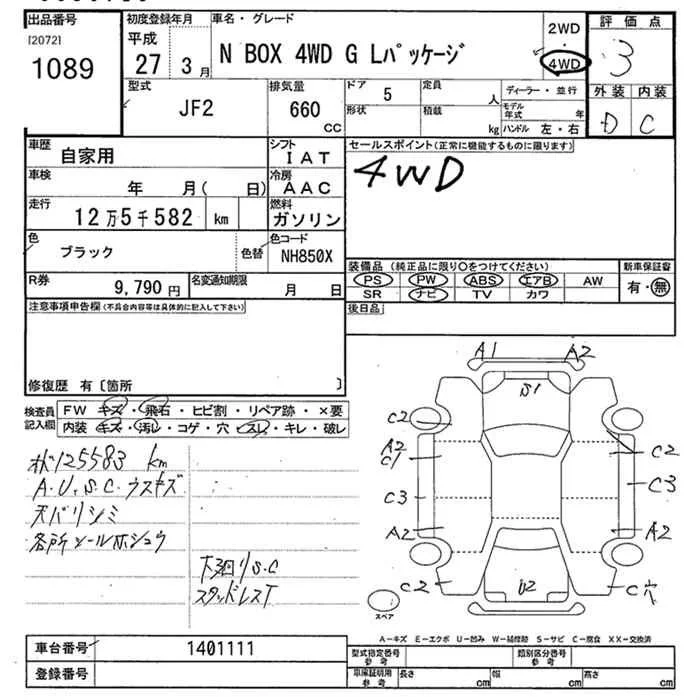 出品番号
[2072]
1089
初度登録年月
平成
27 3月
車名・グレード
N BOX 4WD G Lパッケージ
2WD
・
4WD
評価点
3
外装 内装
D C
型式
JF2
排気量
660
CC
ドア 5
形状
定員 人
積載 kg
ディーラー・並行
モデル年式 年
ハンドル 左・右
車歴
自家用
シフト
IAT
車検
年 月( 日)
冷房
AAC
走行
12万5千582 km
燃料
ガソリン
色
ブラック
色替
色コード
NH850X
R券
9,790円
名変通知期限
月 日
セールスポイント(正常に機能するものに限ります)
4WD
装備品(純正品に限り○をつけてください)
PS PW ABS エアB AW
SR ナビ TV カワ
新車保証書
有・無
後日品
注意事項申告欄(不具合内容等は具体的に記入して下さい)
修復歴 有〔箇所 〕
検査員記入欄
FW キズ・飛石・ヒビ割・リペア跡・×要
内装 キズ・汚レ・コゲ・穴・スレ・キレ・破レ
125583 km
A.U.S.C.ウスキズ
天バリシミ
各所シールホシュウ
下廻りS.C
スタッドレスT
A1 A2
S1
C2
A2
C1
C2
C3
C3
A2
A2
C2
U2
C穴
スペア
A−キズ E−エクボ U−凹み W−補修跡 S−サビ C−腐食 XX−交換済
車台番号
1401111
登録番号
型式指定番号
参考
類別区分番号
参考
車庫証明用
参考
長さ cm
幅 cm
高さ cm